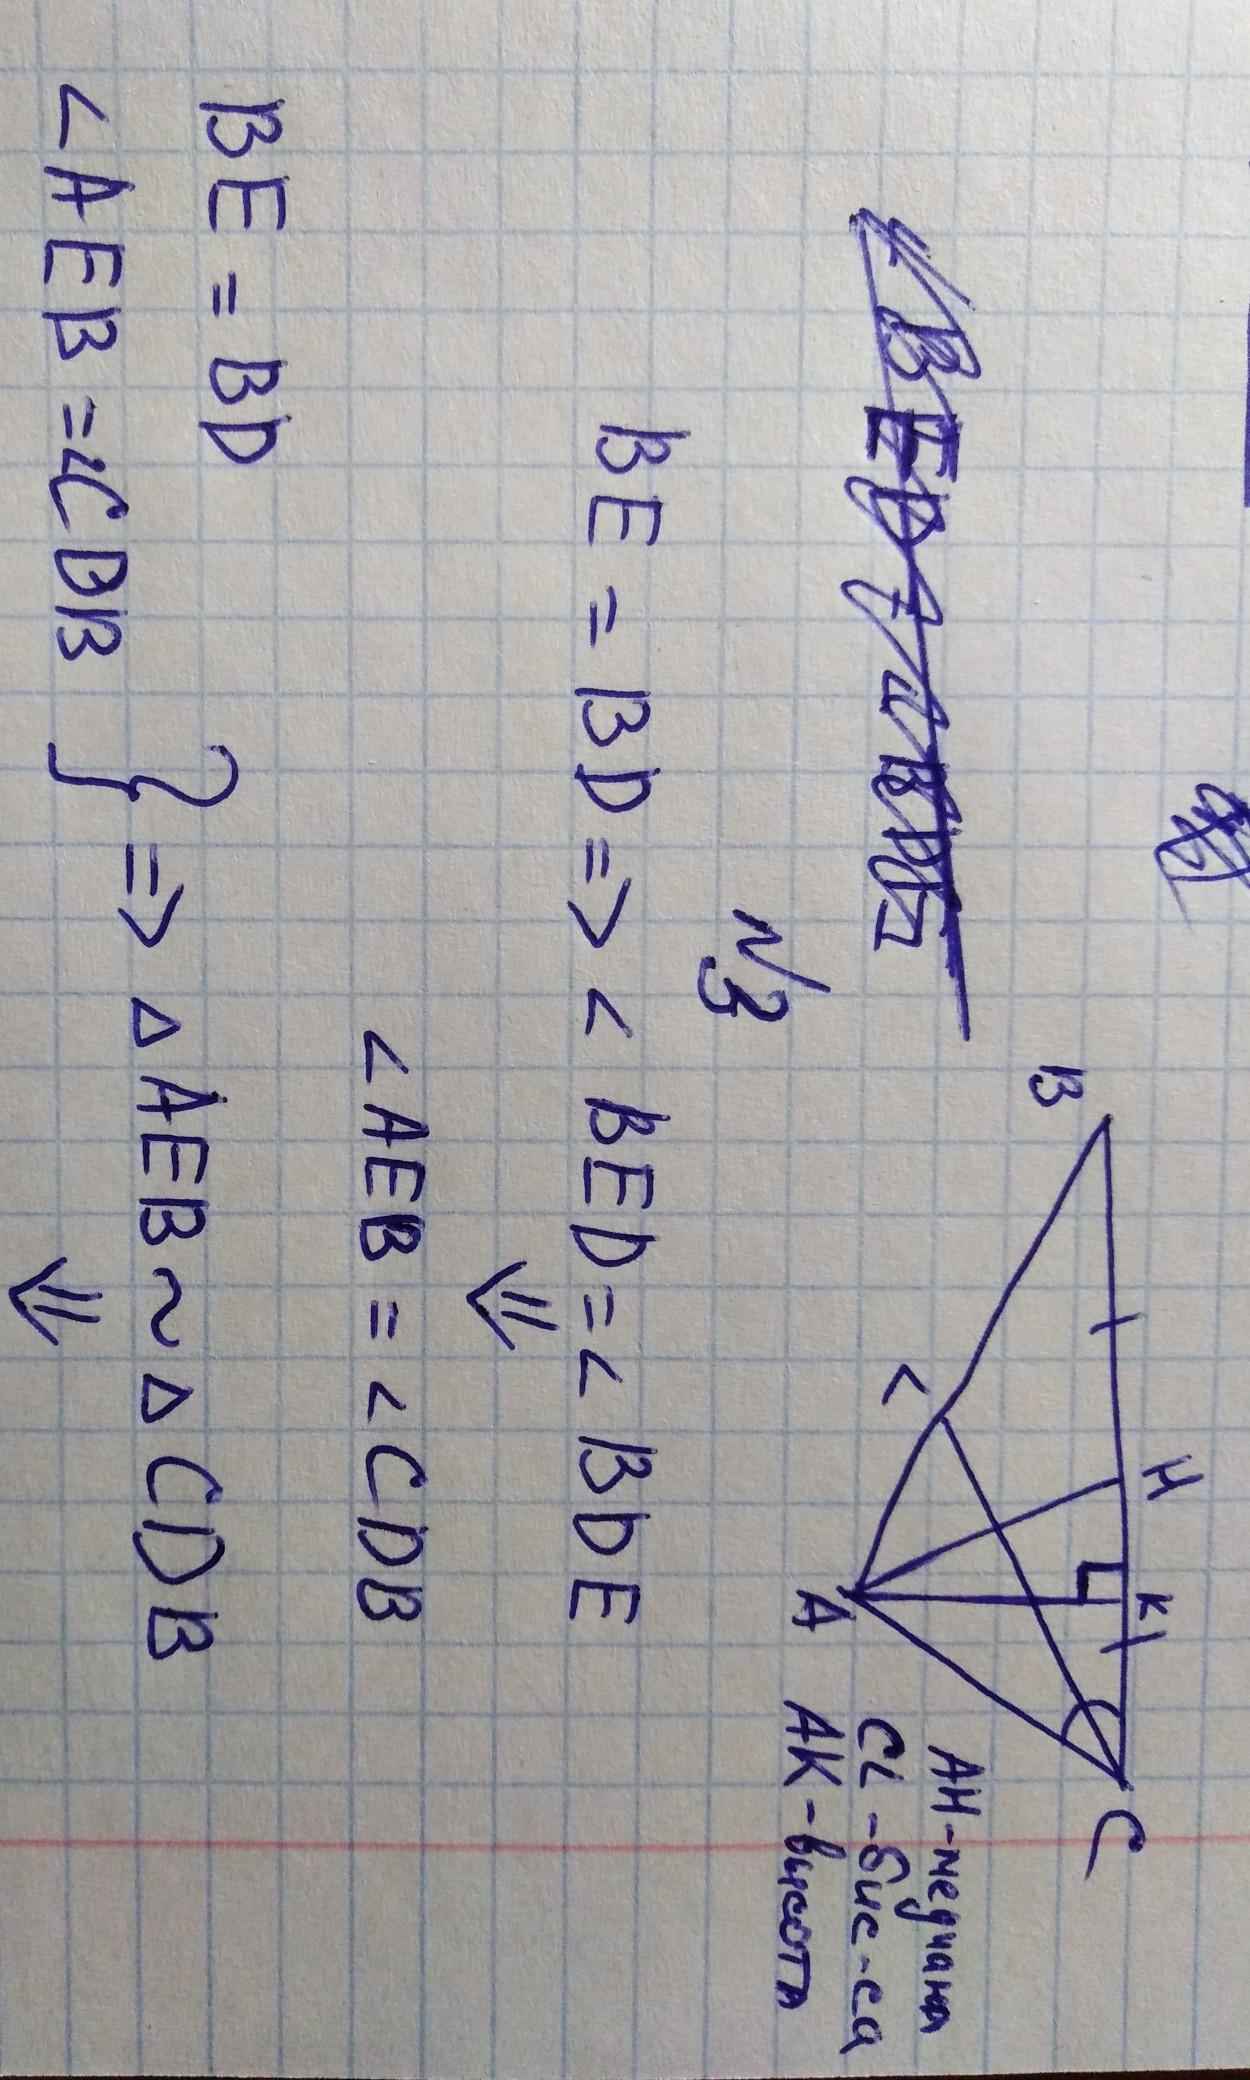 B
H
K
C
L
A
AH-медиана
CL-бис-са
AK-высота
N3
BE = BD => < BED = < BDE
<AEB = <CDB
BE = BD
<AEB = <CDB } => △AEB ~ △CDB